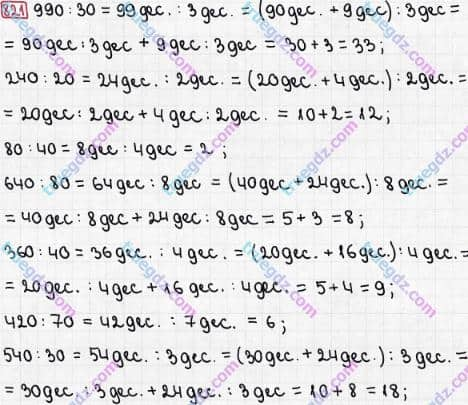 821 990 : 30 = 99 дес. : 3 дес. = (90 дес. + 9 дес) : 3 дес =
= 90 дес : 3 дес + 9 дес : 3 дес = 30 + 3 = 33;
240 : 20 = 24 дес. : 2 дес. = (20 дес. + 4 дес.) : 2 дес. =
= 20 дес : 2 дес + 4 дес : 2 дес. = 10 + 2 = 12;
80 : 40 = 8 дес : 4 дес = 2 ;
640 : 80 = 64 дес : 8 дес = (40 дес + 24 дес.) : 8 дес. =
= 40 дес : 8 дес + 24 дес : 8 дес = 5 + 3 = 8;
360 : 40 = 36 дес. : 4 дес. = (20 дес. + 16 дес.) : 4 дес. =
= 20 дес. : 4 дес + 16 дес. : 4 дес. = 5 + 4 = 9;
420 : 70 = 42 дес. : 7 дес. = 6;
540 : 30 = 54 дес. : 3 дес. = (30 дес. + 24 дес.) : 3 дес. =
= 30 дес : 3 дес. + 24 дес. : 3 дес = 10 + 8 = 18;